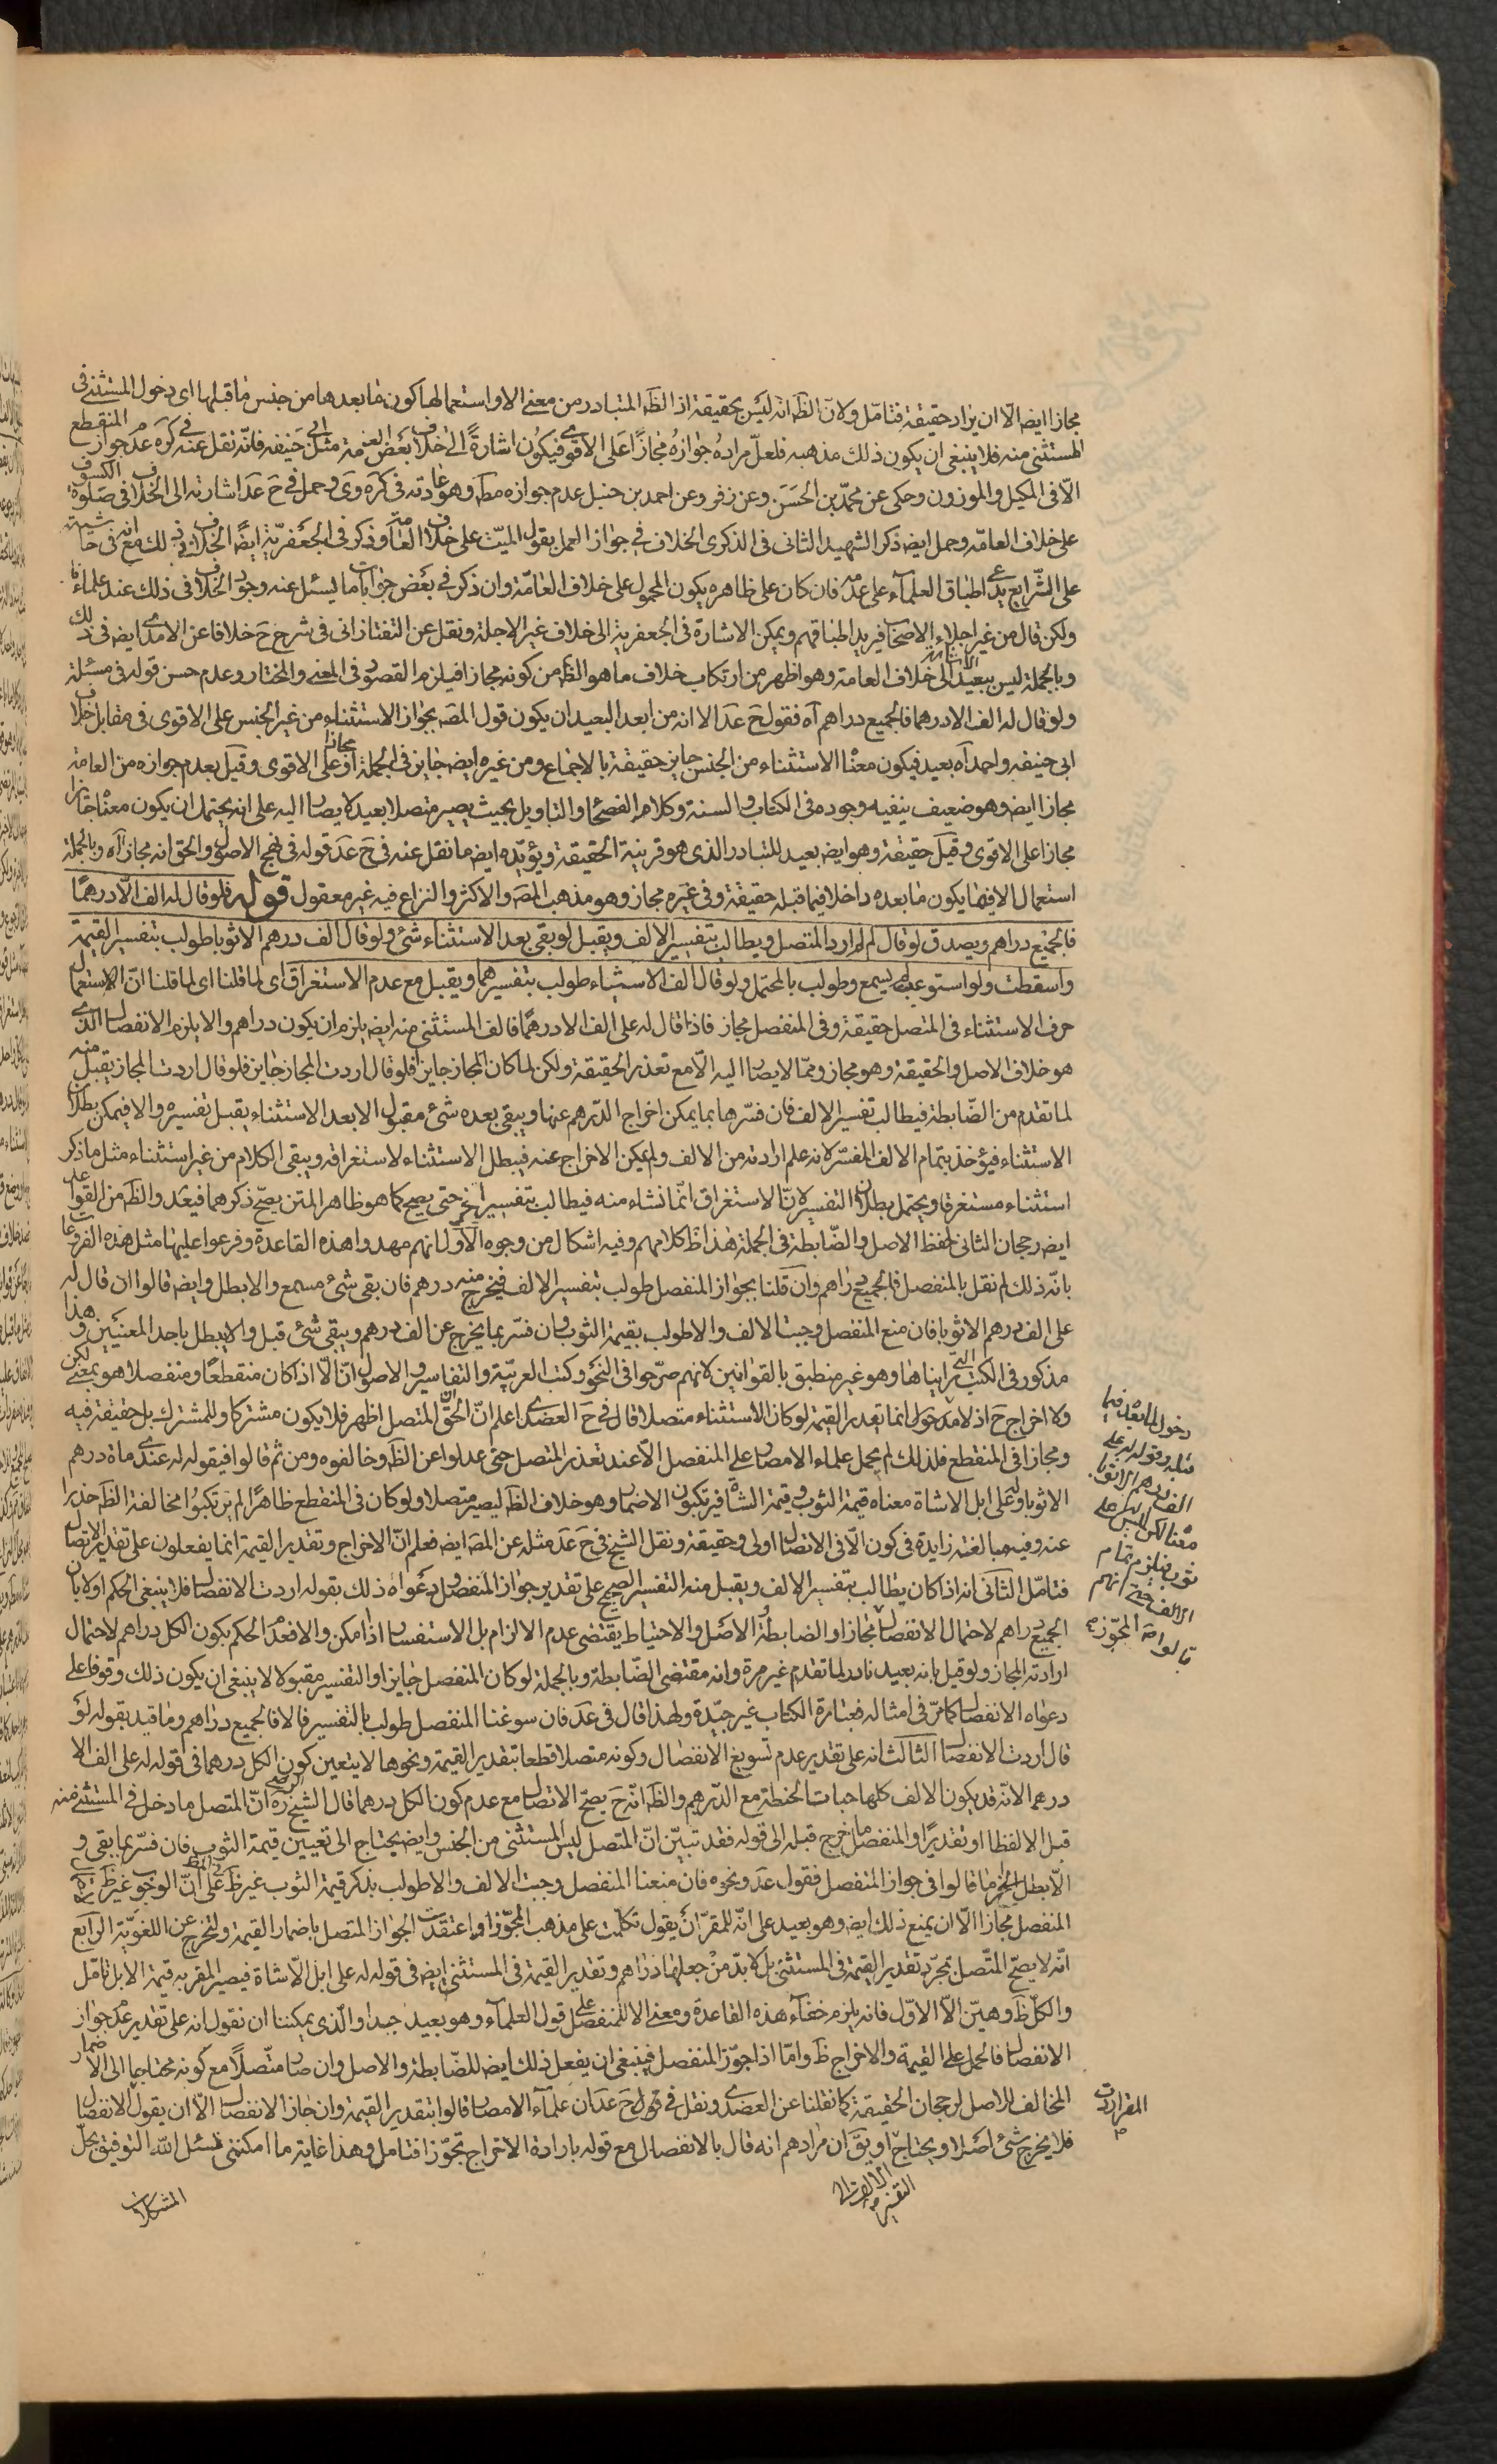 مجازا ايضا الّا ان يراد حقيقة فتامّل ولانّ الظّ انّه ليس بحقيقة اذ الظّ المتبادر من معنى الا واستعمالها كون ما بعدها من جنس ما قبلها اى دخول المستثنى فى
المستثنى منه فلا ينبغى ان يكون ذلك مذهبه فلعلّ مراده جوازه مجازا على الاقوى فيكون اشارة الى خلاف بعض العامة مثل ابى حنيفه فانّه نقل عنه فى كره عدم جواز المنقطع
الّا فى المكيل والموزون وحكى عن محمّد بن الحسن وعن زفر وعن احمد بن حنبل عدم جوازه مطّ وهو عادته فى كره وى وحمل فى ح عد اشارته الى الخلاف فى صلوة الكسوف
على خلاف العامّه وحمل ايضا ذكر الشهيد الثانى فى الذكرى الخلاف فى جواز العمل بقول الميّت على خلاف العامة وذكر فى الجعفريّة ايضا الخلاف فى ذلك مع انه فى حاشيته
على الشّرايع يدعى اطباق العلماء على عدمه فان كان على ظاهره يكون المحمول على خلاف العامّة وان ذكر فى بعض جوابات ما يسئل عنه وجود الخلاف فى ذلك عند علمائنا
ولكن قال من غير اجلاء الاصحاب فيريد اطباقهم ويمكن الاشارة فى الجعفرية الى خلاف غير الاجلة ونقل عن التفتازانى فى شرح ح خلافا عن الامدى ايضا فى ذلك
وبالجملة ليس ببعيد الاشارة الى خلاف العامة وهو اظهر من ارتكاب خلاف ما هو الظّ من كونه مجازا فيلزم القصور فى المعنى والمختار وعدم حسن قوله فى مسئلة
ولو قال له الف الا درهما فالجميع دراهم آه فقول ح عد الا انه من ابعد البعيد ان يكون قول المصّ بجواز الاستثناء من غير الجنس على الاقوى فى مقابل خلاف
ابى حنيفه واحمد آه بعيد فيكون معنا الاستثناء من الجنس جايز حقيقة بالاجماع ومن غيره ايضا جايز فى الجملة او مجازا على الاقوى وقيل بعدم جوازه من العامة
مجازا ايضا وهو ضعيف ينفيه وجوده فى الكتاب والسنة وكلام الفصحاء والتاويل بحيث يصير متصلا بعيد لا يصار اليه على انه يحتمل ان يكون معنا جايزا
مجازا على الاقوى وقيل حقيقة وهو ايضا بعيد للتبادر الذى هو قرينة الحقيقة ويؤيّده ايضا ما نقل عنه فى ح عد قوله فى نهج الاصول والحق انه مجاز آه وبالجملة
استعمال الا فيما يكون ما بعده داخلا فيما قبله حقيقة وفى غيره مجاز وهو مذهب المصّ والاكثر والنزاع فيه غير معقول قوله فلو قال له الف الّا درهما
فالجميع دراهم ويصدق لو قال لم ارد المتصل ويطالب بتفسير الالف ويقبل لو بقى بعد الاستثناء شئ ولو قال الف درهم الا ثوبا طولب بتفسير القيمة
واسقطت ولو استوعبه لم يسمع وطولب بالمحتمل ولو قال الف الا شيئا طولب بتفسيرهما ويقبل مع عدم الاستغراق اى لما قلنا اى لما قلنا انّ الاستعمال
حرف الاستثناء فى المتصل حقيقة وفى المنفصل مجاز فاذا قال له على الف الا درهما فالف المستثنى منه ايضا يلزم ان يكون دراهم والا يلزم الانفصال الذى
هو خلاف الاصل والحقيقة وهو مجاز وممّا لا يصار اليه الّا مع تعذر الحقيقة ولكن لما كان المجاز جايزا فلو قال اردت المجاز جايز فلو قال اردت المجاز يقبل منه
لما تقدم من الضّابطة فيطالب تفسير الالف فان فسّرها بما يمكن اخراج الدّرهم عنها ويبقى بعده شئ مقبول الا بعد الاستثناء يقبل تفسيره والا فيمكن بطلان
الاستثناء فيؤخذ بتمام الالف المفسّر لانه علم ارادته من الالف ولم يمكن الاخراج عنه فيبطل الاستثناء لاستغراقه ويبقى الكلام من غير استثناء مثل ما ذكر
استثناء مستغرقا ويحتمل بطلان التفسير لانّ الاستغراق انّما نشاء منه فيطالب بتفسير اخر حتى يصح كما هو ظاهر المتن يصحّ ذكرهما فيعد والظّ من القواعد
ايضا رجحان الثانى لحفظ الاصل والضّابطة فى الجملة هذا ظّ كلامهم وفيه اشكال من وجوه الاول انهم مهدوا هذه القاعدة وفرعوا عليها مثل هذه الفروعات
بانّه ذلك لم نقل بالمنفصل فالجميع دراهم وان قلنا بجواز المنفصل طولب بتفسير الالف فيخرج منه درهم فان بقى شئ مسمع والا بطل وايضا قالوا ان قال له
على الف درهم الا ثوبا فان منع المنفصل وجبت الالف والا طولب بقيمة الثوب فان فسّر بما يخرج عن الف درهم ويبقى شئ قبل والا يبطل باحد المعنيين وهذا
مذكور فى الكتب التى رايناها وهو غير منطبق بالقوانين لانهم صرّحوا فى النحو وكتب العربيّة والتفاسير والاصول انّ الّا اذا كان منقطعا ومنفصلا هو بمعنى لكن
ولا اخراج ح اذ لا مدخول انما تقدير القيمة لو كان الاستثناء متصلا قال فى ح العضدى اعلم انّ الحقّ المتصل اظهر فلا يكون مشتركا وللمشترك بل حقيقة فيه
ومجازا فى المنقطع فلذلك لم يحمل علماء الامصار على المنفصل الّا عند تعذر المتصل حتى عدلوا عن الظّ وخالفوه ومن ثم قالوا فيقوله له عندى ماة درهم
الا ثوبا وله على ابل الا شاة معناه قيمة الثوب وقيمة الشاة فيرتكبون الاضمار وهو خلاف الظّ ليصير متصلا ولو كان فى المنقطع ظاهرا لم يرتكبوا مخالفة الظّ حذرا
عنه وفيه مبالغة زايدة فى كون الّا فى الاتصال اولى وحقيقة ونقل الشيخ فى ح عد مثله عن المصّ ايضا فعلم انّ الاخراج وتقدير القيمة انما يفعلون على تقدير الاتصال
فتامّل الثانى انه اذا كان يطالب بتفسير الالف ويقبل منه التفسير الصحيح على تقدير جواز المنفصل ودعواه ذلك بقوله اردت الانفصال فلا ينبغى الحكم اولا بان
الجميع دراهم لاحتمال الانفصال مجازا والضابطة والاصل والاحتياط يقتضى عدم الالزام بل الاستفسار اذا امكن والا فعدم الحكم بكون الكل دراهم لاحتمال
ارادته المجاز ولو قيل بانه بعيد نادر لما تقدم غير مرة وانه مقتضى الضّابطة وبالجملة لو كان المنفصل جايزا والتفسير مقبولا لا ينبغى ان يكون ذلك وقوفا على
دعواه الانفصال كما مرّ فى امثاله فعبارة الكتاب غير جيّدة ولهذا قال فى عد فان سوغنا المنفصل طولب بالتفسير والا فالجميع دراهم وما قيد بقوله لو
قال اردت الانفصال الثالث انه على تقدير عدم تسويغ الانفصال وكونه متصلا قطعا بتقدير القيمة ونحوها لا يتعين كون الكل درهما فى قوله له على الف الا
درهما لانّه قد يكون الالف كلها حبات الحنطة مع الدّرهم والظّ انّه ح يصحّ الاتصال مع عدم كون الكل درهما قال الشيخ الرضى ره انّ المتصل ما دخل فى المستثنى منه
قبل الا لفظا او تقديرا والمنفصل ما لم يخرج قبله الى قوله فقد تبيّن انّ المتصل ليس المستثنى من الجنس وايضا يحتاج الى تعيين قيمة الثوب فان فسّر بما يبقى و
الّا بطل الى اخر ما قالوا فى جواز المنفصل فقول عد ونحوه فان منعنا المنفصل وجبت الالف والا طولب بذكر قيمة الثوب غير ظّ على انّ الوجوب غير ظّ
المنفصل مجازا الّا ان يمنع ذلك ايضا وهو بعيد على انّه للمقرّ ان يقول تكلّمت على مذهب المجوّز او اعتقدت الجواز المتصل باضمار القيمة ولتخرج عن اللغويّة الرابع
انّه لا يصحّ المتّصل بمجرّد تقدير القيمة فى المستثنى بل لا بدّ من جعلها دراهم وتقدير القيمة فى المستثنى ايضا فى قوله له على ابل الّا شاة فيصير المقر به قيمة الابل تامّل
والكلّ ظّ وهيّن الّا الاوّل فانه يلزم خفاء هذه القاعدة ومعنى الا المنفصل على قول العلماء وهو بعيد جدا والّذى يمكننا ان نقول انه على تقدير عدم جواز
الانفصال فالحمل على القيمة والاخراج ظّ وامّا اذا جوّز المنفصل فينبغى ان يفعل ذلك ايضا للضّابطة والاصل وان صار متّصلا مع كونه محتاجا الى الاضمار
المخالف للاصل لرجحان الحقيقة كما نقلنا عن العضدى ونقل فى قول ح عد ان علماء الامصار قالوا بتقدير القيمة وان جاز الانفصال الّا ان يقول الانفصال
فلا يخرج شئ اصلا ويحتاج او يقّ ان مرادهم انه قال بالانفصال مع قوله بارادة الاخراج تجوّزا فتامل وهذا غاية ما امكننى فسئل اللّه التوفيق بحلّ
المشكلات
دخول لما بعد فيما
قبله وقوله له على
الف درهم الا ثوبا
معنا لكن ليس على
ثوب فيلزم تمام
الالف حتى انهم
قالوا
المقر اردت